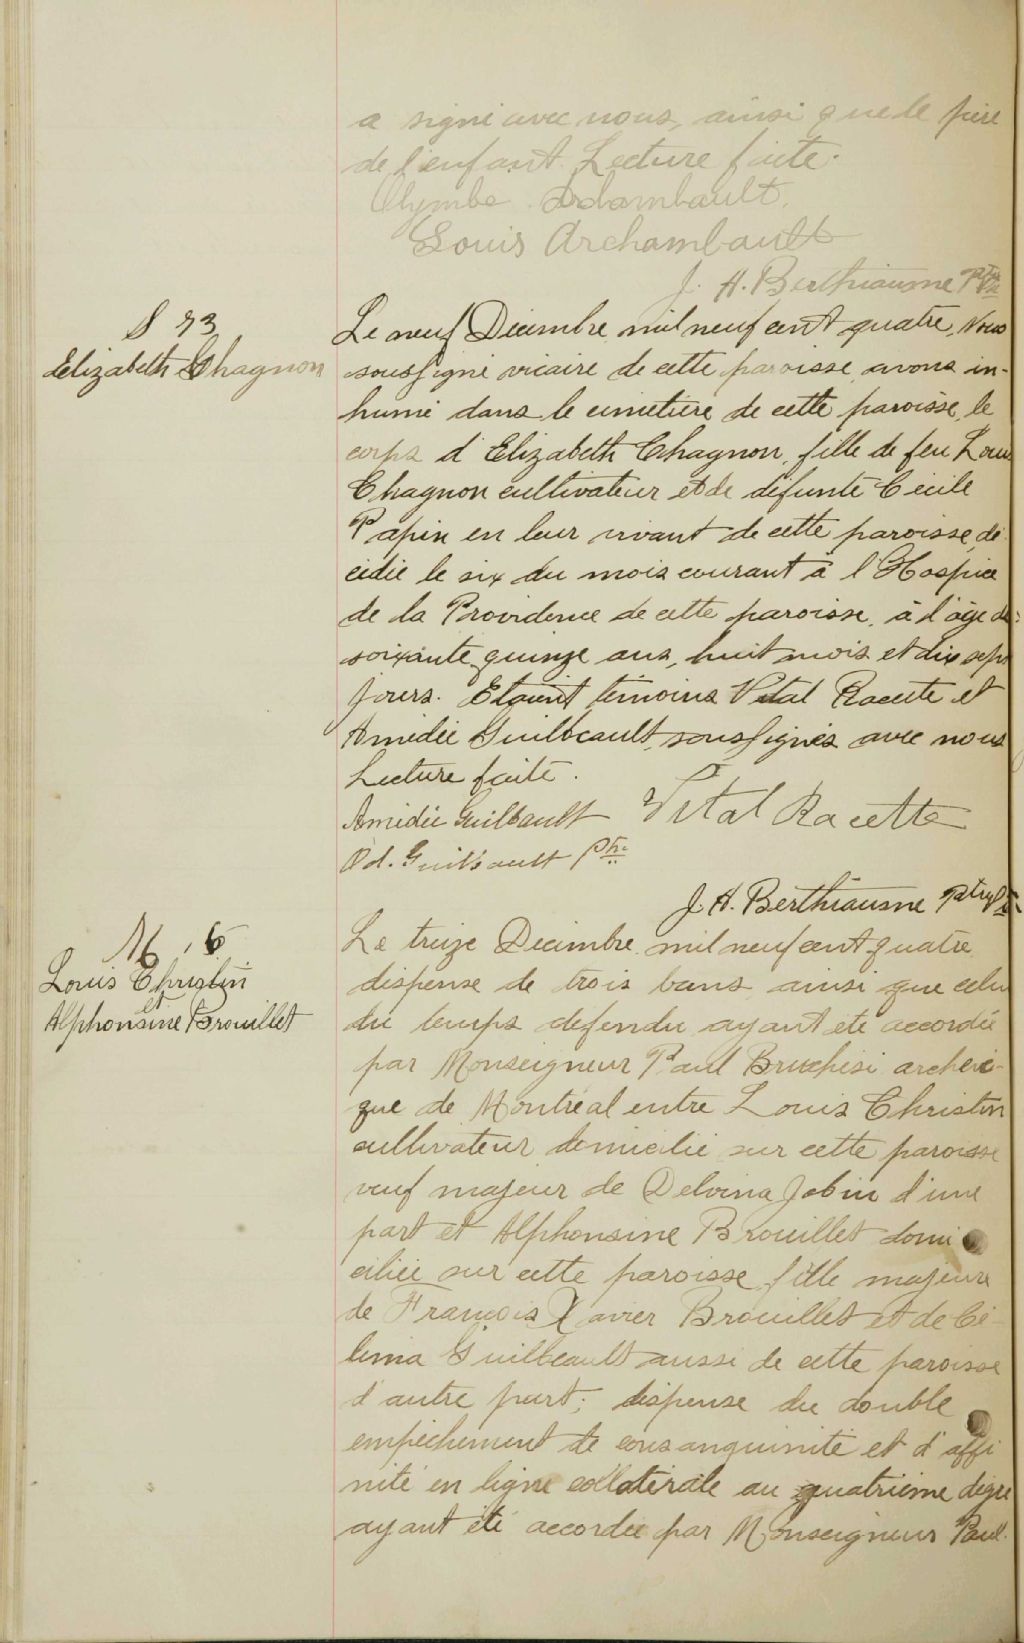 a signé avec nous, ainsi que le père
de l'enfant. Lecture faite.
Olymbe Archambault.
Louis Archambault
J. H. Berthiaume Ptre
S 73
Elizabeth Chagnon
Le neuf Décembre mil neuf cent quatre, Nous
soussigné vicaire de cette paroisse avons in-
humé dans le cimetière de cette paroisse, le
corps d'Elizabeth Chagnon, fille de feu Louis
Chagnon cultivateur et de défunte Cécile
Papin en leur vivant de cette paroisse, dé-
cédée le six du mois courant à l'Hospice
de la Providence de cette paroisse, à l'âge de
soixante quinze ans, huit mois et dix sept
jours. Etaient témoins Vital Racette et
Amédée Guilbeault, soussignés avec nous
Lecture faite.
Amédée Guilbault Vital Racette
Od. Guilbault Ptre
J. H. Berthiaume Ptre
M. 6
Louis Christin
et
Alphonsine Brouillet
Le treize Décembre mil neuf cent quatre
dispense de trois bans ainsi que celui
du temps défendu ayant été accordée
par Monseigneur Paul Bruchési archevê-
que de Montréal entre Louis Christin
cultivateur domicilié sur cette paroisse
veuf majeur de Delvina Jobin d'une
part et Alphonsine Brouillet domi
ciliée sur cette paroisse fille majeure
de François Xavier Brouillet et de Cé-
lima Guilbeault aussi de cette paroisse
d'autre part; dispense du double
empêchement de consanguinité et d'affi
nité en ligne collatérale au quatrième degré
ayant été accordée par Monseigneur Paul